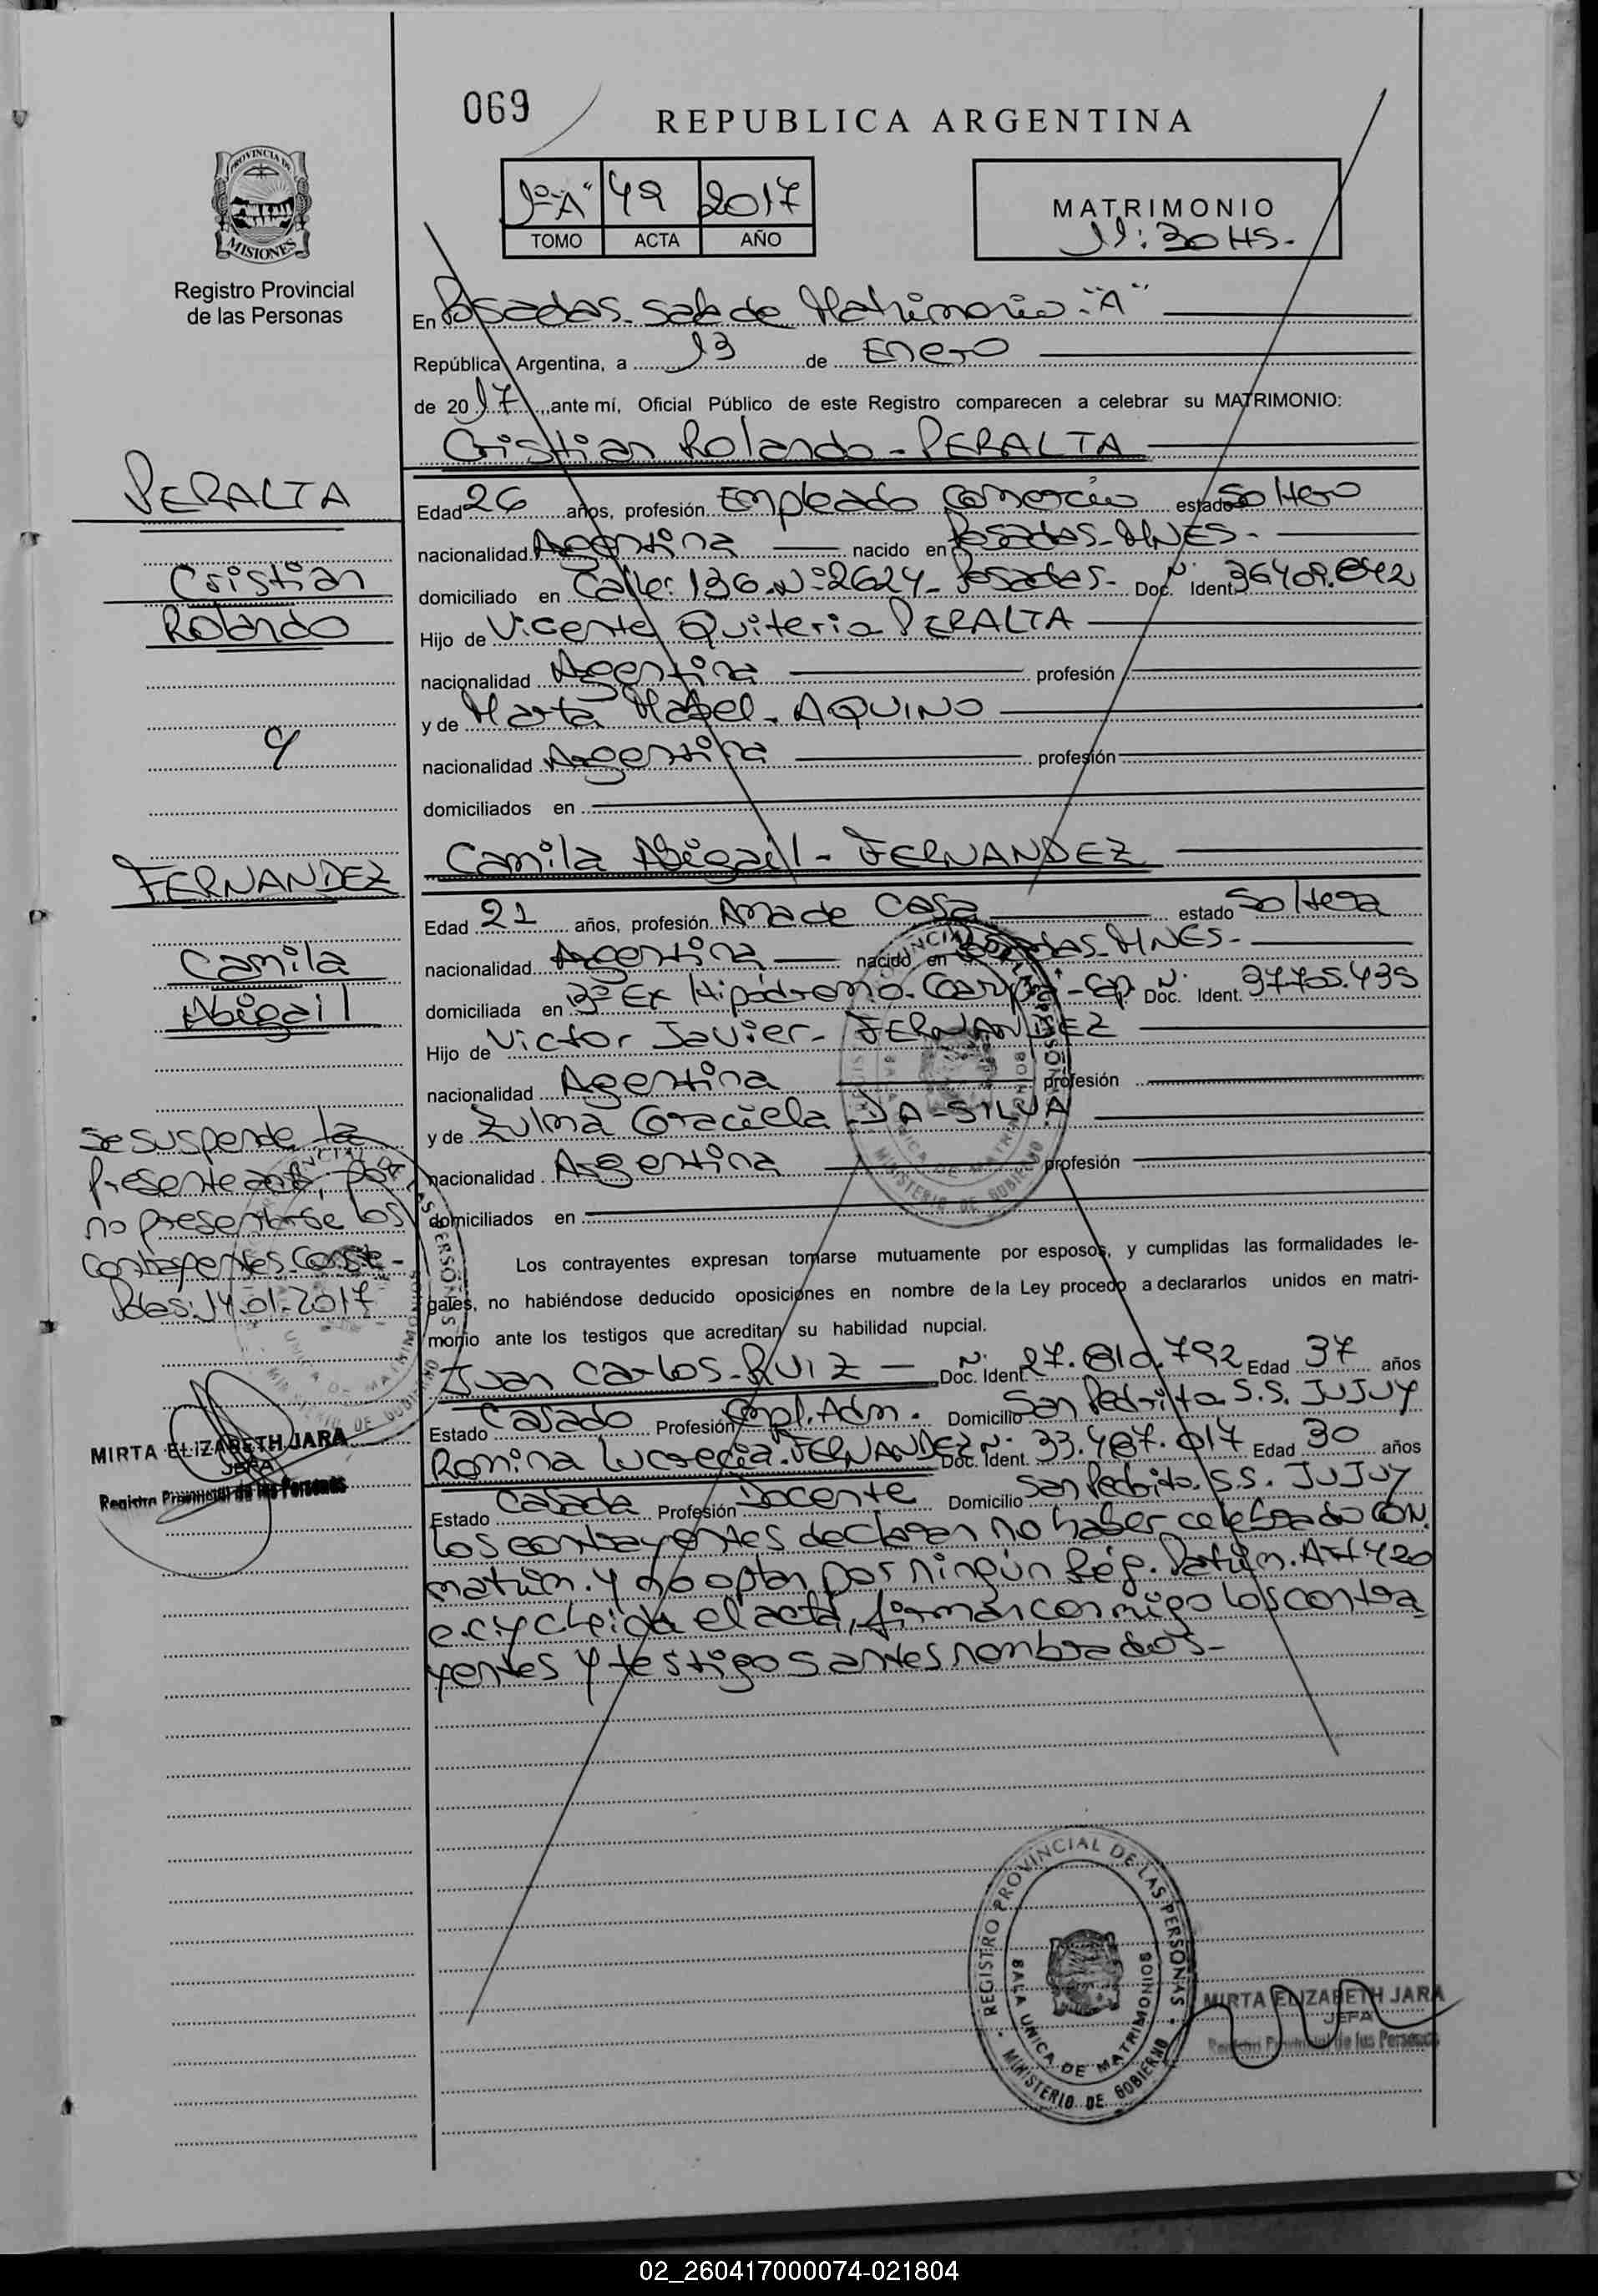 069
REPUBLICA ARGENTINA
1º "A" 49 2017
TOMO ACTA AÑO
MATRIMONIO
11:30 HS.
PROVINCIA DE
MISIONES
Registro Provincial
de las Personas
En Posadas. Sala de Matrimonio. "A"
República Argentina, a 13 de Enero
de 20 17 ante mí, Oficial Público de este Registro comparecen a celebrar su MATRIMONIO:
Cristian Rolando - PERALTA
PERALTA
Cristian
Rolando
y
FERNANDEZ
Camila
Abigail
Edad 26 años, profesión Empleado Comercio estado Soltero
nacionalidad Argentina nacido en Posadas - MNES.
domiciliado en Calle: 136. Nº 2624 - Posadas - Doc. Nº Ident.
Hijo de Vicente Quiterio PERALTA
nacionalidad Argentina profesión
y de Marta Mabel. AQUINO
nacionalidad Argentina profesión
domiciliados en
Camila Abigail - FERNANDEZ
Edad 21 años, profesión Ama de Casa estado Soltera
nacionalidad Argentina nacido en Posadas - MNES -
domiciliada en Bº Ex Hipódromo. Garupá - Cap. Doc. Nº Ident. 37.705.435
Hijo de Victor Javier - FERNANDEZ
nacionalidad Argentina profesión
y de Zulma Graciela DA-SILVA.
nacionalidad Argentina profesión
domiciliados en
Se suspende la
presente acta, por
no presentarse los
contrayentes. Conste -
Pdas: 14.01.2017
MIRTA ELIZABETH JARA
JEFA
Registro Provincial de las Personas
Los contrayentes expresan tomarse mutuamente por esposos, y cumplidas las formalidades le-
gales, no habiéndose deducido oposiciones en nombre de la Ley procedo a declararlos unidos en matri-
monio ante los testigos que acreditan su habilidad nupcial.
Juan Carlos - RUIZ Doc. Nº Ident. 27.810.792 Edad 37 años
Estado Casado Profesión Empl. Adm. Domicilio San Pedrito. S.S. JUJUY
Romina Lucrecia. FERNANDEZ Doc. Nº Ident. 33.487.017 Edad 30 años
Estado Casada Profesión Docente Domicilio San Pedrito. S.S. JUJUY
Los contrayentes declaran no haber celebrado CON.
matrim. y no optan por ningún Rég. Patrim. Art 420
e. c. y c. Leída el acta, firman conmigo los contra
yentes y testigos antes nombrados -
REGISTRO PROVINCIAL DE LAS PERSONAS
SALA UNICA DE MATRIMONIOS
MINISTERIO DE GOBIERNO
MIRTA ELIZABETH JARA
JEFA
Registro Provincial de las Personas
02_260417000074-021804